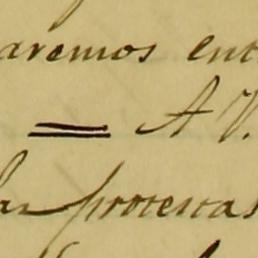 aremos ent
= A V.
las protestas